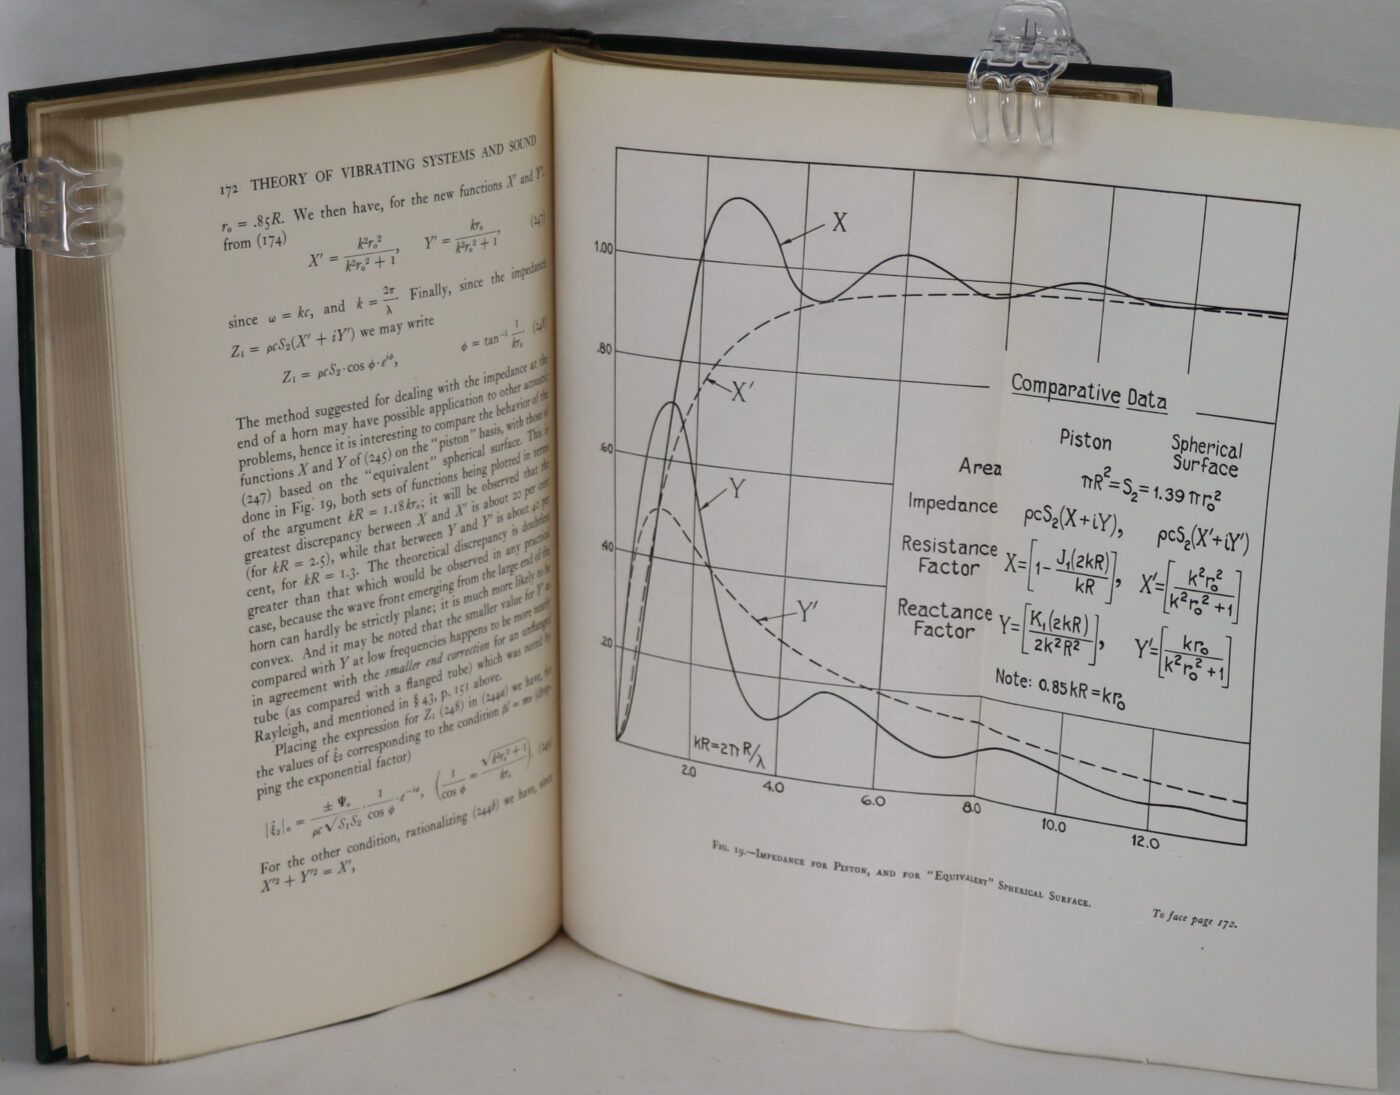 172 THEORY OF VIBRATING SYSTEMS AND SOUND
r₀ = .85R. We then have, for the new functions X′ and Y′,
from (174)
X′ = k²r₀² / (k²r₀² + 1), Y′ = kr₀ / (k²r₀² + 1), (247)
since ω = kc, and k = 2π/λ. Finally, since the impedance
Z₁ = ρcS₂(X′ + iY′) we may write
Z₁ = ρcS₂·cos ϕ·e^{iϕ}, ϕ = tan⁻¹ 1/kr₀. (248)
The method suggested for dealing with the impedance at the
end of a horn may have possible application to other acoustic
problems, hence it is interesting to compare the behavior of the
functions X and Y of (245) on the "piston" basis, with those of
(247) based on the "equivalent" spherical surface. This is
done in Fig. 19, both sets of functions being plotted in terms
of the argument kR = 1.18kr₀; it will be observed that the
greatest discrepancy between X and X′ is about 20 per cent
(for kR = 2.5), while that between Y and Y′ is about 40 per
cent, for kR = 1.3. The theoretical discrepancy is doubtless
greater than that which would be observed in any practical
case, because the wave front emerging from the large end of the
horn can hardly be strictly plane; it is much more likely to be
convex. And it may be noted that the smaller value for Y′ as
compared with Y at low frequencies happens to be more nearly
in agreement with the smaller end correction for an unflanged
tube (as compared with a flanged tube) which was noted by
Rayleigh, and mentioned in § 43, p. 151 above.
Placing the expression for Z₁ (248) in (244a) we have, for
the values of ξ̇₂ corresponding to the condition βl = mπ (drop-
ping the exponential factor)
|ξ̇₂|ₐ = ± Ψ₀ / ρc√S₁S₂ · 1/cos ϕ · e^{−iϕ}, (1/cos ϕ = √k²r₀² + 1 / kr₀).
For the other condition, rationalizing (244b) we have, since
X′² + Y′² = X′,
X
1.00
.80
X′
.60
Y
.40
Y′
.20
kR=2π R/λ
2.0 4.0 6.0 8.0 10.0 12.0
Comparative Data
Piston Spherical Surface
Area πR²=S₂=1.39 πr₀²
Impedance ρcS₂(X+iY), ρcS₂(X′+iY′)
Resistance Factor X=[1− J₁(2kR)/kR], X′=[k²r₀²/(k²r₀²+1)]
Reactance Factor Y=[K₁(2kR)/2k²R²], Y′=[kr₀/(k²r₀²+1)]
Note: 0.85kR=kr₀
Fig. 19.—Impedance for Piston, and for "Equivalent" Spherical Surface.
To face page 172.